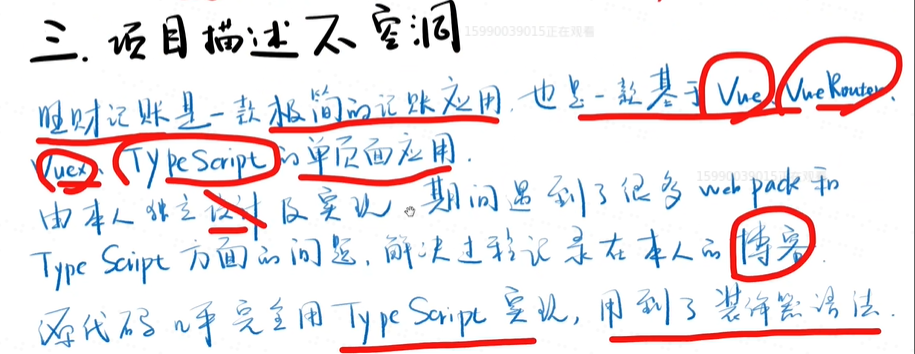 三.项目描述不空洞
15990039015正在观看
旺财记账是一款极简的记账应用.也是一款基于Vue、VueRouter、
Vuex、TypeScript的单页面应用.
15990039015正在观看
由本人独立设计及实现。期间遇到了很多webpack和
TypeScript方面的问题,解决过程记录在本人的博客.
源代码几乎完全用TypeScript实现,用到了装饰器语法.